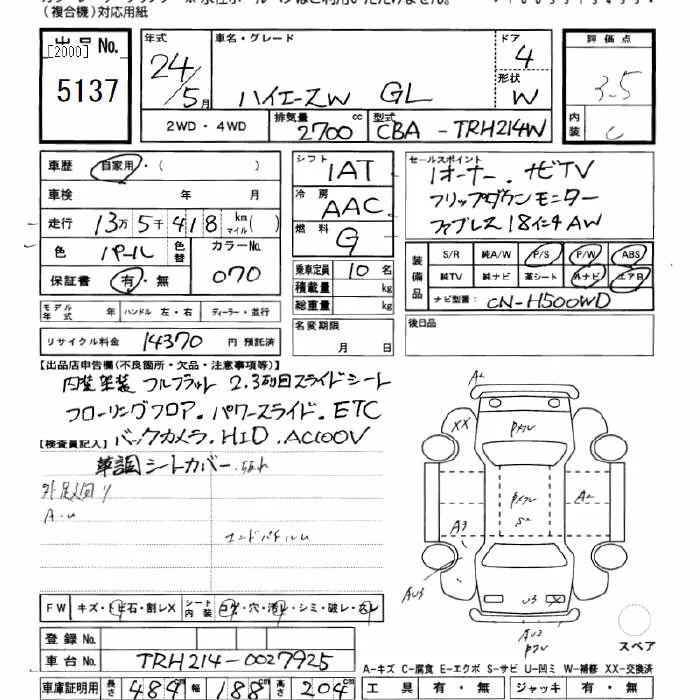 (複合機)対応用紙
出品No.
[2000]
5137
年式 24/5月
車名・グレード ハイエースW GL
ドア 4
形状 W
2WD・4WD
排気量 2700 cc
型式 CBA-TRH214W
評価点 3.5
内装 C
車歴 自家用・( )
車検 年 月
走行 13万5千418 km マイル( )
色 パール
色替
カラーNo. 070
保証書 有・無
シフト 1AT
冷房 AAC
燃料 G
乗車定員 10名
積載量 kg
総重量 kg
セールスポイント
1オーナー.ナビTV
フリップダウンモニター
ファブレス18インチAW
装備品
S/R 純A/W P/S P/W ABS
純TV 純ナビ 革シート 外ナビ エアB
ナビ型番 CN-H500WD
モデル年式 年 ハンドル 左・右 ディーラー・並行
リサイクル料金 14370 円 預託済
名変期限 月 日
後日品
【出品店申告欄(不良箇所・欠品・注意事項等)】
内装架装 フルフラット 2.3列目スライドシート
フローリングフロア.パワースライド.ETC
【検査員記入】バックカメラ.HID.AC100V
革調シートカバー
外足廻り
A2
XX
A2
A3
AU3
U3
X
AU2
FW キズ・トビ石・割レX
シート内装 コゲ・穴・汚レ・シミ・破レ・スレ
スペア
登録No.
車台No. TRH214-0027925
A-キズ C-腐食 E-エクボ S-サビ U-凹ミ W-補修 XX-交換済
車庫証明用 長さ 484 幅 188 高さ 204 cm
工具 有・無 ジャッキ 有・無